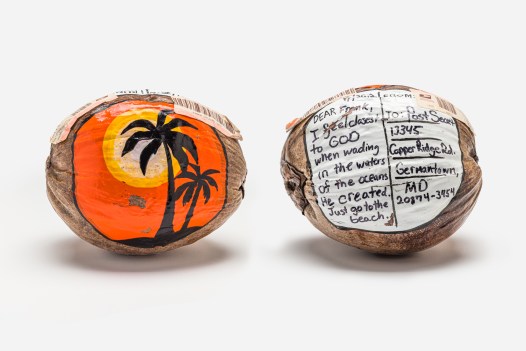 DEAR Frank,
I feel closer
to GOD
when wading
in the waters
of the oceans
He created.
Just go to the
beach.
To: Post Secret
13345
Copper Ridge Rd.
Germantown,
MD
20874-3454